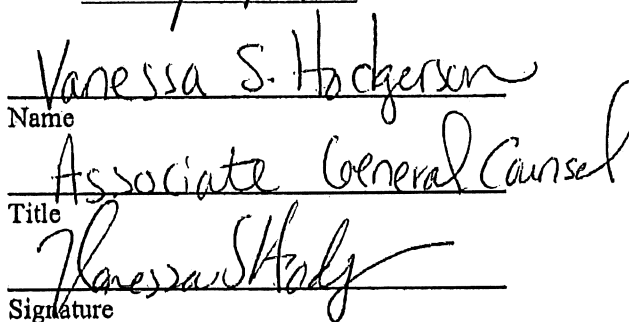 Vanessa S. Hodgerson
Name
Associate General Counsel
Title
Vanessa S Hodg
Signature